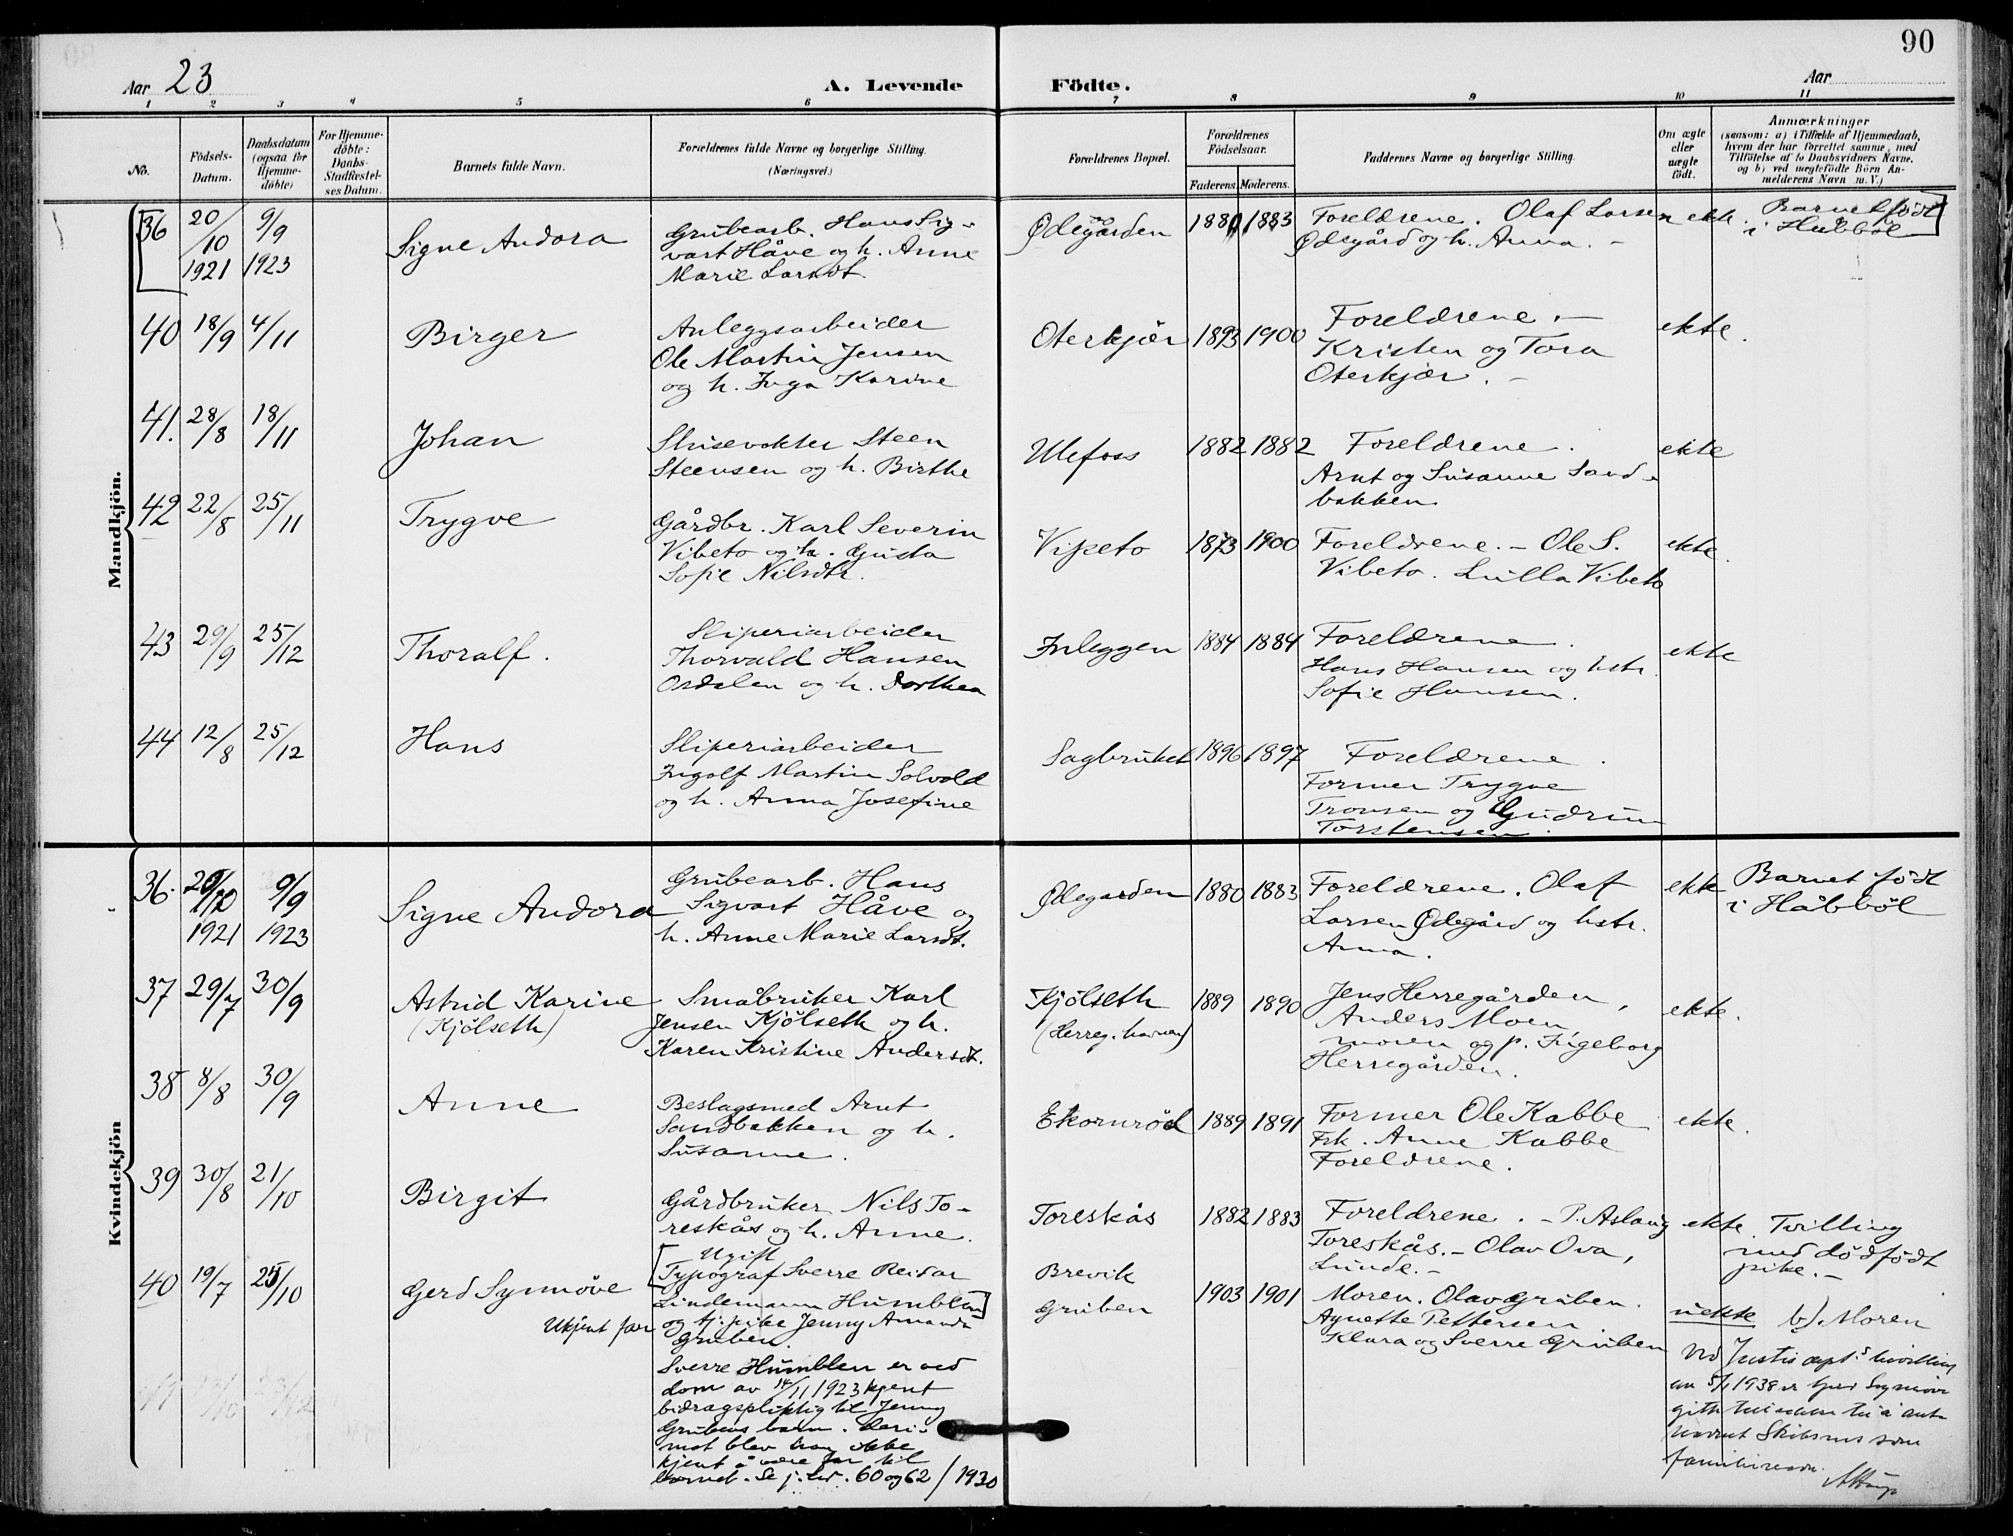 90
Aar 23
A. Levende Födte.
Aar
1 2 3 4 5 6 7 8 9 10 11
No.
Födsels-Datum.
Daabsdatum (ogsaa for Hjemme-döbte)
For Hjemme-döbte: Daabs-Stadfæstel-ses Datum.
Barnets fulde Navn.
Forældrenes fulde Navne og borgerlige Stilling.
(Næringsvei.)
Forældrenes Bopæl.
Forældrenes Födselsaar.
Faderens. Moderens.
Faddernes Navne og borgerlige Stilling.
Om ægte eller uægte födt.
Anmærkninger
(saasom: a) i Tilfælde af Hjemmedaab,
hvem der har forrettet samme, med
Tilföielse af to Daabsvidners Navne.
og b) ved uegtefödte Börn An-
melderens Navn m. V.)
Mandkjön.
36 20/10 1921 9/9 1923 Signe Andora
Grubearb. Hans Sig-
vart Håve og h. Anne
Marie Larsdt.
Ødegården 1880 1883
Foreldrene. Olaf Larsen
Ødegård og h. Anna. -
ekte.
Barnet født
i Håbböl
40 18/9 4/11 Birger
Anleggsarbeider
Ole Martin Jensen
og h. Inga Karine
Oterkjær 1893 1900
Foreldrene. -
Kristen og Tora
Oterkjær. -
ekte.
41. 28/8 18/11 Johan
Slusevokter Steen
Steensen og h. Birthe
Ulefoss 1882 1882
Foreldrene.
Arnt og Susanne Sand-
bakken
ekte
42 22/8 25/11 Trygve
Gårdbr. Karl Severin
Vibeto og h. Gusta
Sofie Nilsdtr.
Vipeto 1873 1900
Foreldrene. - Ole S.
Vibeto. Lulla Vibeto
ekte.
43 29/9 25/12 Thoralf.
Sliperiarbeider
Thorvald Hansen
Osdalen og h. Dorthea
Inleggen 1884 1884
Foreldrene.
Hans Hansen og hstr.
Sofie Hansen.
ekte
44 12/8 25/12 Hans
Sliperiarbeider
Ingolf Martin Solvold
og h. Anna Josefine
Sagbruket 1896 1897
Foreldrene.
Former Trygve
Tronsen og Gudrun
Torstensen.
Kvindekjön
36. 20/10 1921 9/9 1923 Signe Andora
Grubearb. Hans
Sigvart Håve og
h. Anne Marie Larsdt.
Ødegarden 1880 1883
Foreldrene. Olaf
Larsen Ødegård og hstr.
Anna.
ekte
Barnet født
i Håbböl
37 29/7 30/9 Astrid Karine
(Kjölseth)
Småbruker Karl
Jensen Kjölseth og h.
Karen Kristine Andersdt.
Kjölseth
(Herreg. havna)
1889 1890
Jens Herregården,
Anders Moen,
moren og p. Ingeborg
Herregården.
ekte.
38 8/8 30/9 Anne
Beslagsmed Arnt
Sandbakken og h.
Susanne.
Ekornröd 1889 1891
Former Ole Kabbe
Frk. Anne Kabbe
Foreldrene.
ekte.
39 30/8 21/10 Birgit
Gårdbruker Nils To-
reskås og h. Anne.
Toreskås 1882 1883
Foreldrene. - P. Aslaug
Toreskås. - Olav Ova,
Lunde. -
ekte.
Tvilling
med dödfödt
pike. -
40 19/7 25/10 Gerd Synnöve
Ukjent far
[Ugift
Typograf Sverre Reidar
Lindemann Humblen]
og tj. pike Jenny Amanda
Gruben.
Sverre Humblen er ved
dom av 14/11 1923 kjent
bidragspliktig til Jenny
Grubens barn. Deri-
mot blev han ikke
kjent å være far til
barnet. Se j. nr. 60 og 62 / 1930
Brevik
Gruben
1903 1901
Moren. Olav Gruben.
Agnette Pettersen
Klara og Sverre Gruben
uekte
b) Moren
Ved Justisdept.s bevilling
av 5/1 1938 er Gerd Synnöve
gitt tilladelse til å anta
navnet Skibsnes som
familienavn.